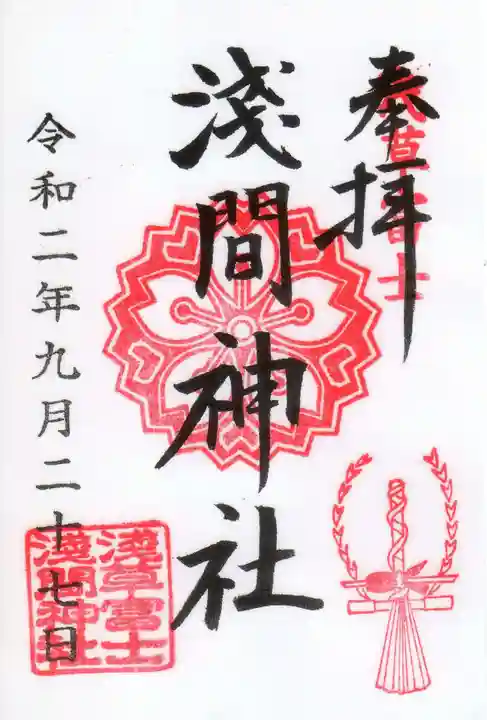 奉拝
浅草富士
淺間神社
令和二年九月二十七日
淺草富士
淺間神社